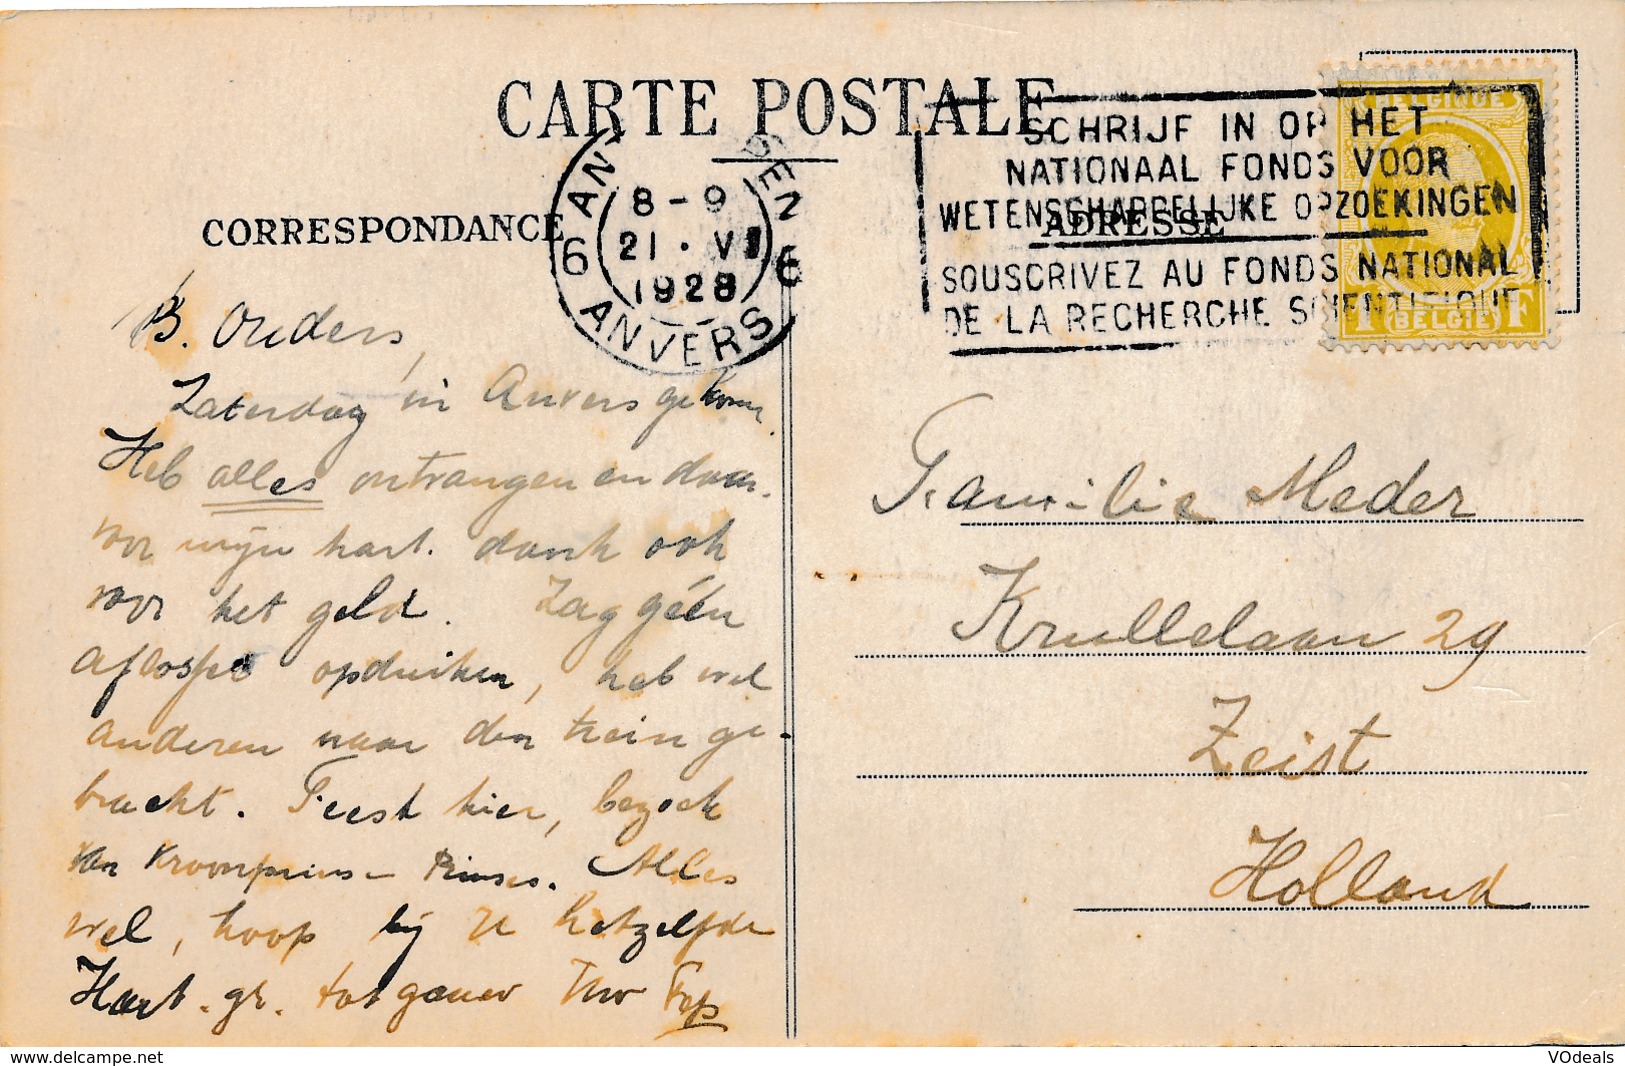 CARTE POSTALE
CORRESPONDANCE
ADRESSE
6 ANTWERPEN 6
8-9
21 · VI
1928
ANVERS
SCHRIJF IN OP HET
NATIONAAL FONDS VOOR
WETENSCHAPPELIJKE OPZOEKINGEN
SOUSCRIVEZ AU FONDS NATIONAL
DE LA RECHERCHE SCIENTIFIQUE
BELGIQUE
1F BELGIË F
B. Ouders,
Zaterdag in Anvers gekom.
Heb alles ontvangen en daar-
voor mijn hart. dank ook
voor het geld. Zag géén
opduiken, heb wel
anderen naar den trein ge-
bracht. Feest hier, bezoek
van Kroonprins - Prinses. Alles
wel, hoop bij U hetzelfde
Hart. gr. tot gauw Uw
Familie Meder
Krullelaan 29
Zeist
Holland
www.delcampe.net
VOdeals